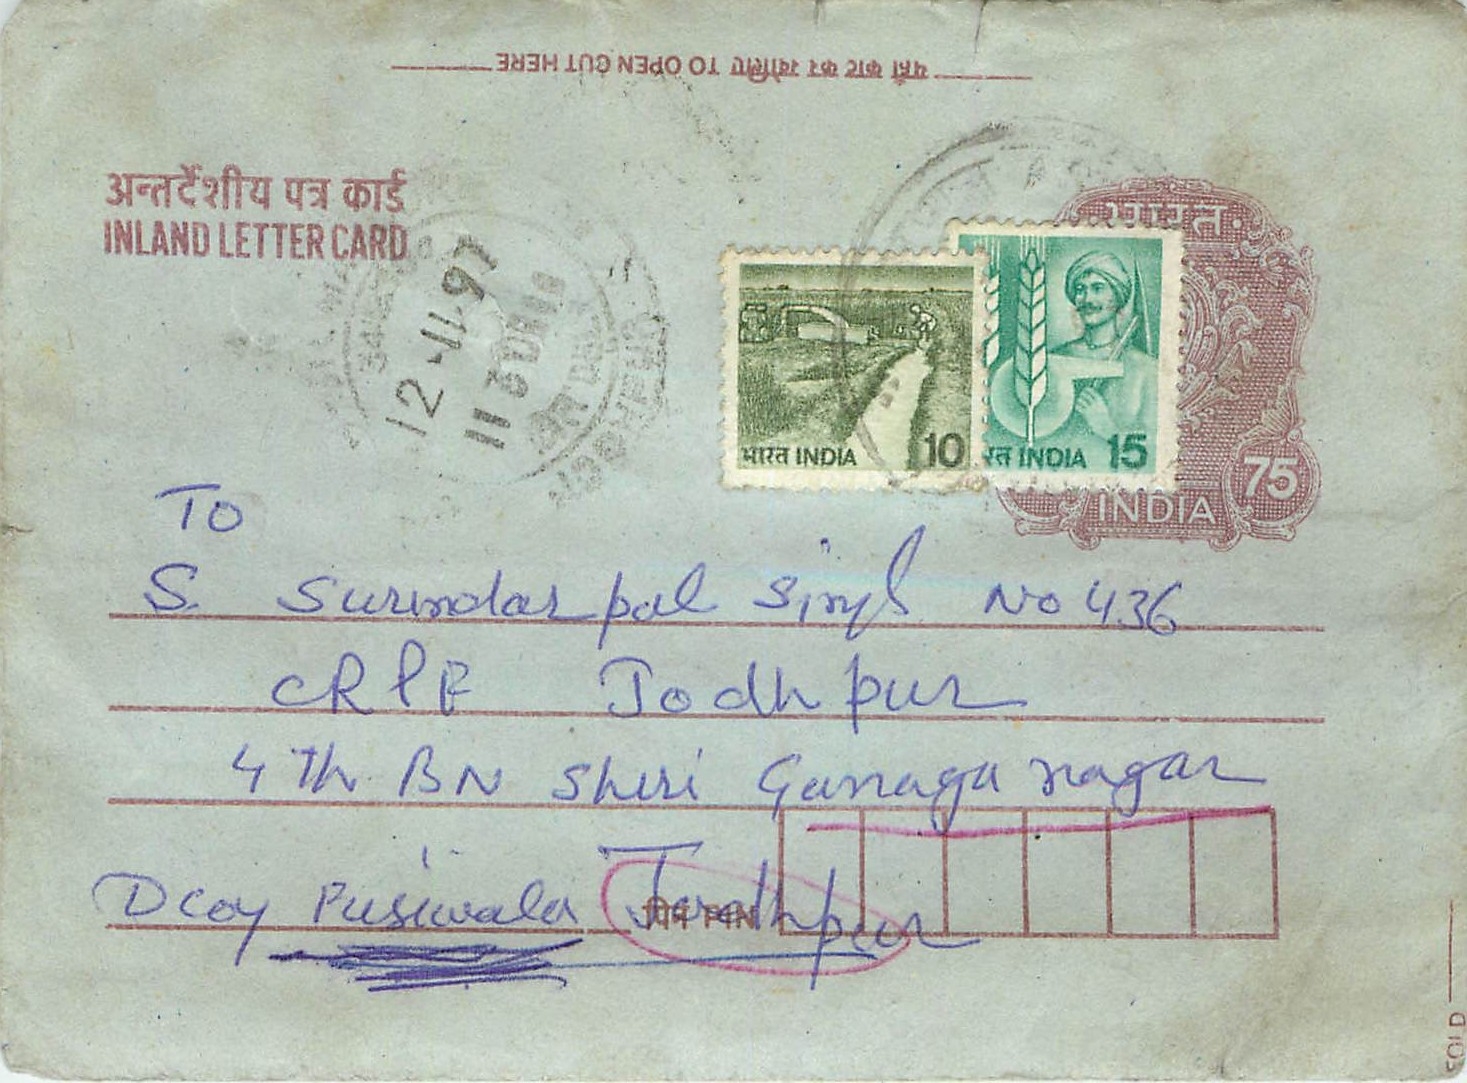 यहाँ काट कर खोलिए TO OPEN CUT HERE
अन्तर्देशीय पत्र कार्ड
INLAND LETTER CARD
भारत
75
INDIA
भारत INDIA 10
रत INDIA 15
12-11-97
JODHPUR
To
S. Surindarpal Singh No 436
CRPF Jodhpur
4 Th BN Shiri Ganaga nagar
पिन PIN
D coy Pusiwala Jurdhpur
FOLD